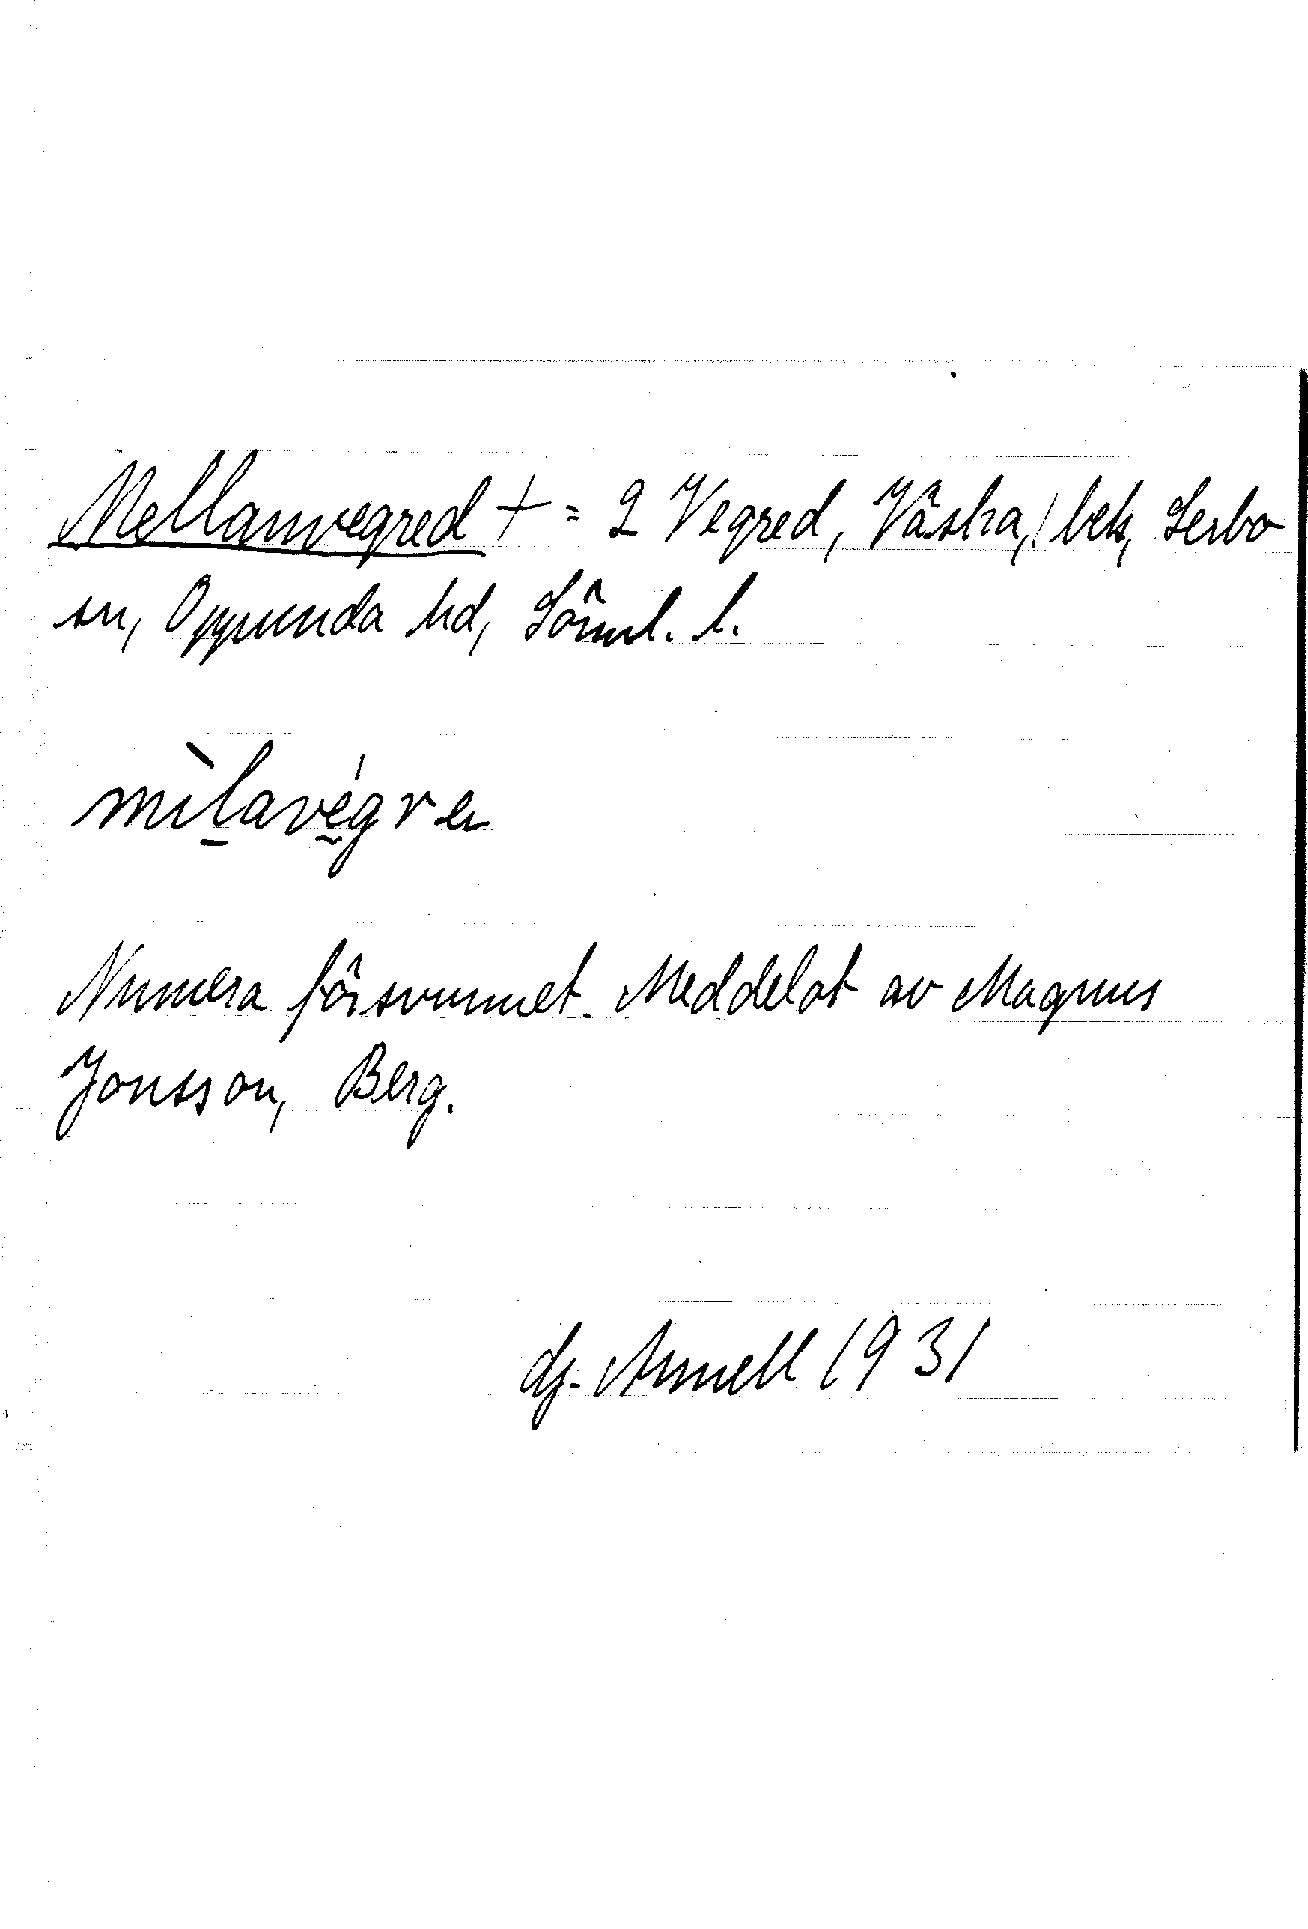 Mellanvegred + = 2 Vegred, Väshra, ! bek, Lerbo
sn, Oppunda hd, Sörml. l.
mìlavégre
Numera försvunnet. Meddelat av Magnus
Jonsson, Berg.
Gj. Arnell 1931